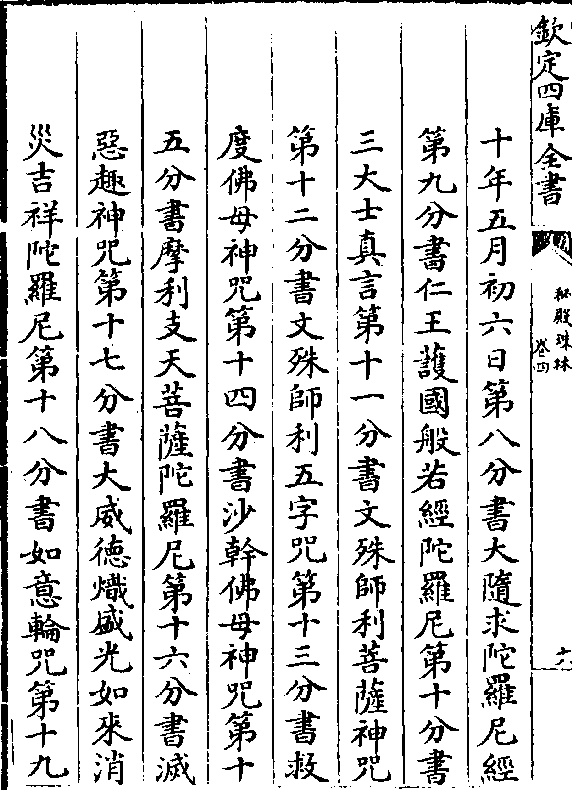 欽定四庫全書
秘殿珠林
卷四
十年五月初六日第八分書大隨求陀羅尼經
第九分書仁王護國般若經陀羅尼第十分書
三大士真言第十一分書文殊師利菩薩神咒
第十二分書文殊師利五字咒第十三分書救
度佛母神咒第十四分書沙幹佛母神咒第十
五分書摩利支天菩薩陀羅尼第十六分書滅
惡趣神咒第十七分書大威德熾盛光如來消
災吉祥陀羅尼第十八分書如意輪咒第十九